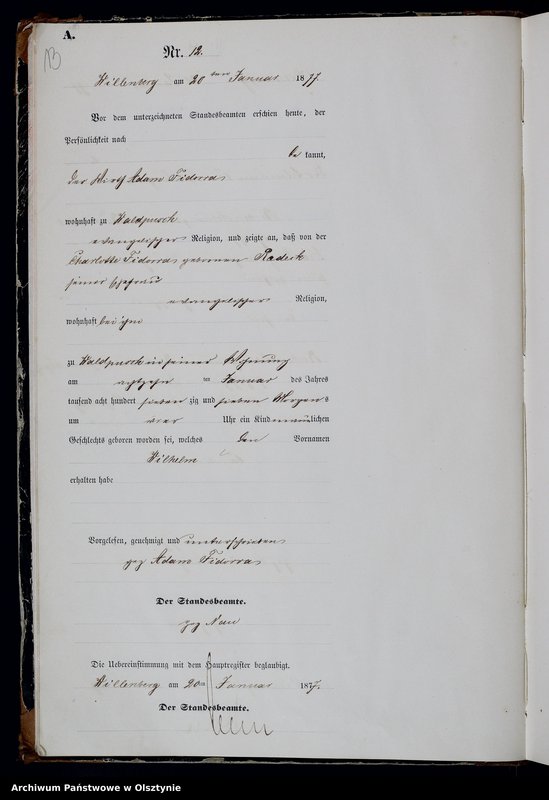 A.
13
Nr. 12.
Willenberg am 20 ten Januar 1877.
Vor dem unterzeichneten Standesbeamten erschien heute, der
Persönlichkeit nach
be kannt,
der Wirth Adam Fidorra
wohnhaft zu Waldpusch
evangelischer Religion, und zeigte an, daß von der
Charlotte Fidorra geborenen Radeck
seiner Ehefrau
evangelischer Religion,
wohnhaft bei ihm
zu Waldpusch in seiner Wohnung
am achtzehn ten Januar des Jahres
tausend acht hundert sieben zig und sieben Morgens
um vier Uhr ein Kind männlichen
Geschlechts geboren worden sei, welches den Vornamen
Wilhelm
erhalten habe
Vorgelesen, genehmigt und unterschrieben
gez Adam Fidorra
Der Standesbeamte.
gez
Die Uebereinstimmung mit dem Hauptregister beglaubigt.
Willenberg am 20 ten Januar 1877.
Der Standesbeamte.
Archiwum Państwowe w Olsztynie